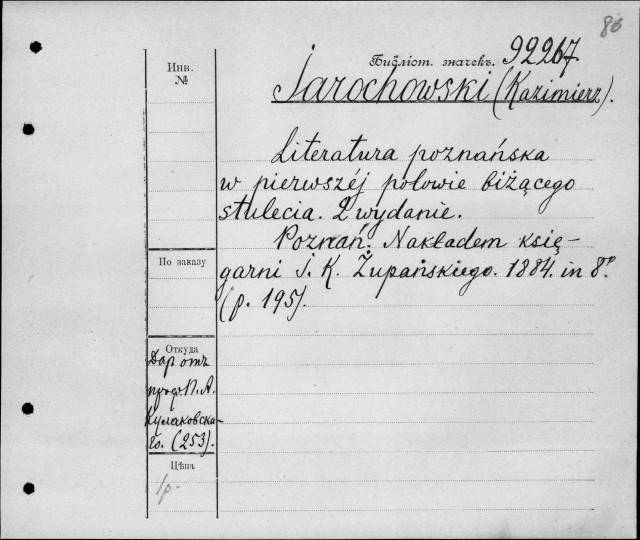 80
Инв. №
Библіот. значекъ. 92267
Jarochowski (Kazimierz).
Literatura poznańska
w pierwszéj połowie biżącego
stulecia. 2 wydanie.
Poznań. Nakładem księ-
garni J. K. Żupańskiego. 1884. in 8º.
(p. 195).
По заказу
Откуда
Даръ отъ
проф. П. А.
Кулаковска-
го. (253).
Цѣна
1р.